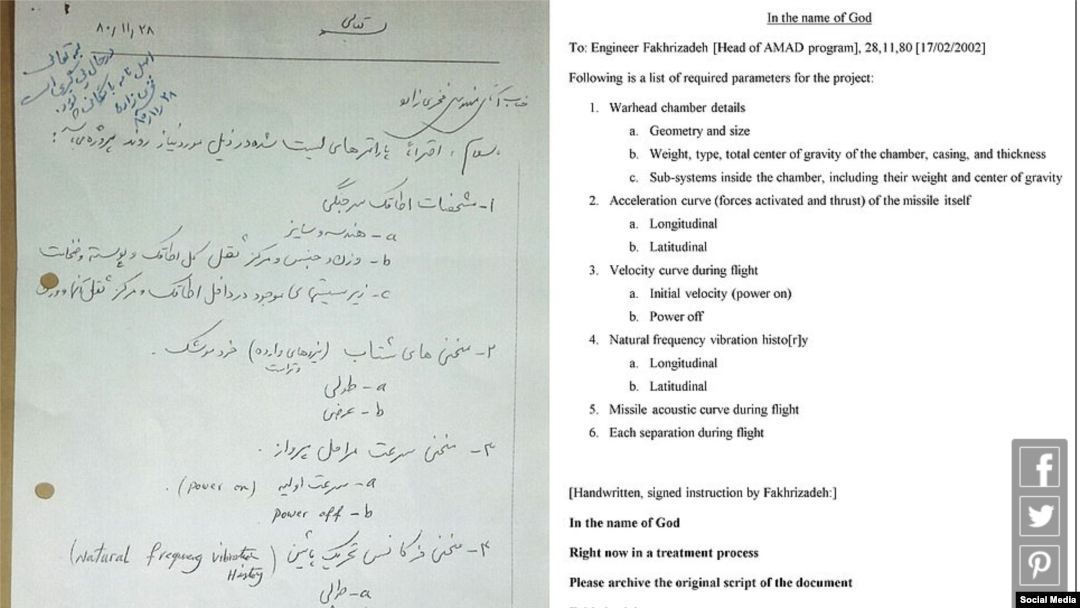 ۸۰/۱۱/۲۸
بسمه تعالی
در حال پی گیری است
اصل نامه بایگانی شود.
فخری زاده
۸۰/۱۱/۲۸
جناب آقای مهندس فخری زاده
سلام، احتراماً پارامترهای لیست شده در ذیل مورد نیاز روند پروژه می‌باشد:
۱- مشخصات اطاقک سرجنگی
a- هندسه و سایز
b- وزن و جنس و مرکز ثقل کل اطاقک و پوسته و ضخامت
c- زیر سیستمهای موجود در داخل اطاقک و مرکز ثقل آنها و وزن
۲- منحنی های شتاب (نیروهای وارده) خود موشک.
وتراست
a- طولی
b- عرضی
۳- منحنی سرعت مراحل پرواز.
a- سرعت اولیه (power on).
b- power off
۴- منحنی فرکانس تحریک پائین (Natural frequency vibration
History)
a- طولی
In the name of God
To: Engineer Fakhrizadeh [Head of AMAD program], 28,11,80 [17/02/2002]
Following is a list of required parameters for the project:
1. Warhead chamber details
a. Geometry and size
b. Weight, type, total center of gravity of the chamber, casing, and thickness
c. Sub-systems inside the chamber, including their weight and center of gravity
2. Acceleration curve (forces activated and thrust) of the missile itself
a. Longitudinal
b. Latitudinal
3. Velocity curve during flight
a. Initial velocity (power on)
b. Power off
4. Natural frequency vibration histo[r]y
a. Longitudinal
b. Latitudinal
5. Missile acoustic curve during flight
6. Each separation during flight
[Handwritten, signed instruction by Fakhrizadeh:]
In the name of God
Right now in a treatment process
Please archive the original script of the document
Social Media